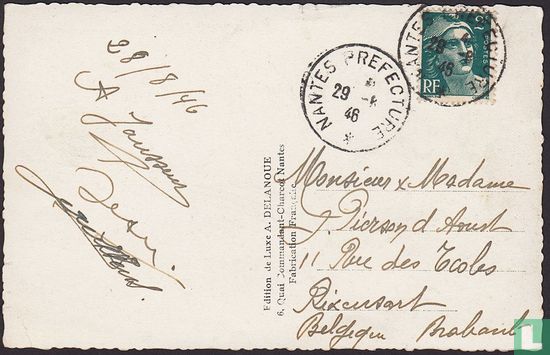 28/8/46
A Janssens
NANTES PREFECTURE
29 -8
46
NANTES PREFECTURE
29 -8
46
2F
POSTES
RF
Edition de Luxe A. DELANOUE
6, Quai Commandant-Charcot Nantes
Fabrication Française
Monsieur x Madame
11 Rue des Ecoles
Rixensart
Belgique Brabant